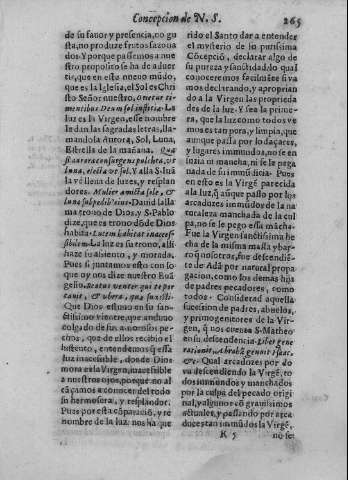 Concepcion de N. S. 265
de su fauor y presencia, no gu
sta, no produze frutos sazona
dos. Y porque passemos a nue
stro proposito se ha de aduer-
tir, que en este nueuo mũdo,
que es la Iglesia, el Sol es Chri
sto Señor nuestro, Orietur ti-
mentibus Deum sol iustitiæ. La
luz es la Virgen, esse nombre
le dan las sagradas letras, lla-
mandola Aurora, Sol, Luna,
Estrella de la mañana. Qua
si aurora consurgens pulchra, vt
luna, electa vt sol. Y alla S. Iuã
la vè llena de luzes, y resplan
dores. Mulier amicta sole, &
luna sub pedibus eius. Dauid la lla
ma trono de Dios, y S. Pablo
dize, que es trono dõde Dios
habita. Lucem habitat inacces-
sibilem. La luz es su trono, alli
haze su assiento, y morada.
Pues si juntamos esto con lo
que oy nos dize nuestro Euã
gelio. Beatus venter qui te por
tauit, & vbera, quæ suxisti.
Que Dios estuuo en su san
tissimo vientre, que anduuo
colgado de sus amorosos pe-
chos, que de ellos recibio el
sustento, entendemos q̃ essa
luz inacessible, donde Dios
mora es la Virgen, inacessible
a nuestros ojos, porque no al
cãçamos a conocer del todo
su hermosura, y resplandor.
Pues por esta cõparació, y re
nombre de la luz nos ha que
rido el Santo dar a entender
el mysterio de su purissima
Cõcepció, declarar algo de
su pureza y santidad, lo qual
conoceremos facilmẽte si va
mos declarando, y aproprian
do a la Virgen las proprieda
des de la luz. Y sea la prime-
ra, que la luz como todos ve
mos es tan pora, y limpia, que
aunque passa por lodaçares,
y lugares immundos, no se en
suzia ni mancha, ni se le pega
nada de su immũdicia. Pues
en esto es la Virgẽ parecida
a la luz, q̃ aunque passò por los
arcaduzes inmũdos de la na
turaleza manchada de la cul
pa, no se le pego essa mãcha.
Fue la Virgen sanctissima he
cha de la misma massa y bar-
ro q̃ nosotros, fue descendiẽ
te de Adã por natural propa
gacion, como los demas hijas
de padres pecadores, como
todos. Considerad aquella
sucesion de padres, abuelos,
y primogenitores de la Vir-
gen, q̃ nos cuenta S. Matheo
en su descendencia. Liber gene
rationis, Abrahã genuit Isaac,
&c. Qual arcaduzes por do
va descendiendo la Virgẽ, to
dos immundos y manchados
por la culpa del pecado origi
nal, y alguno cõ grauissimos
actuales, y passando por arca
duces tan inmũdos la Virgẽ,
K 5 no se